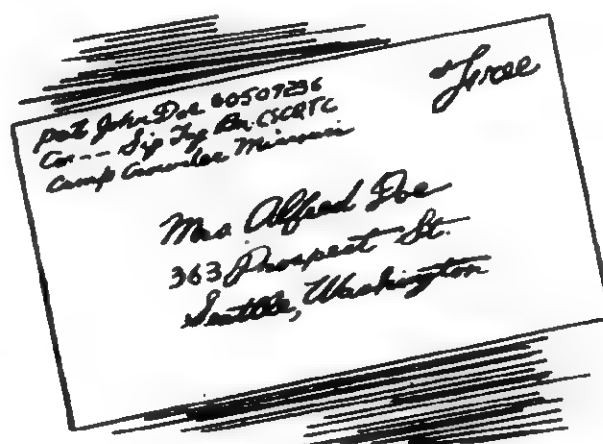 Pvt. John Doe 60507236
Co -- Sig Trg Bn. CSCRTC
Camp Crowder Missouri
Free
Mrs. Alfred Doe
363 Prospect St.
Seattle, Washington